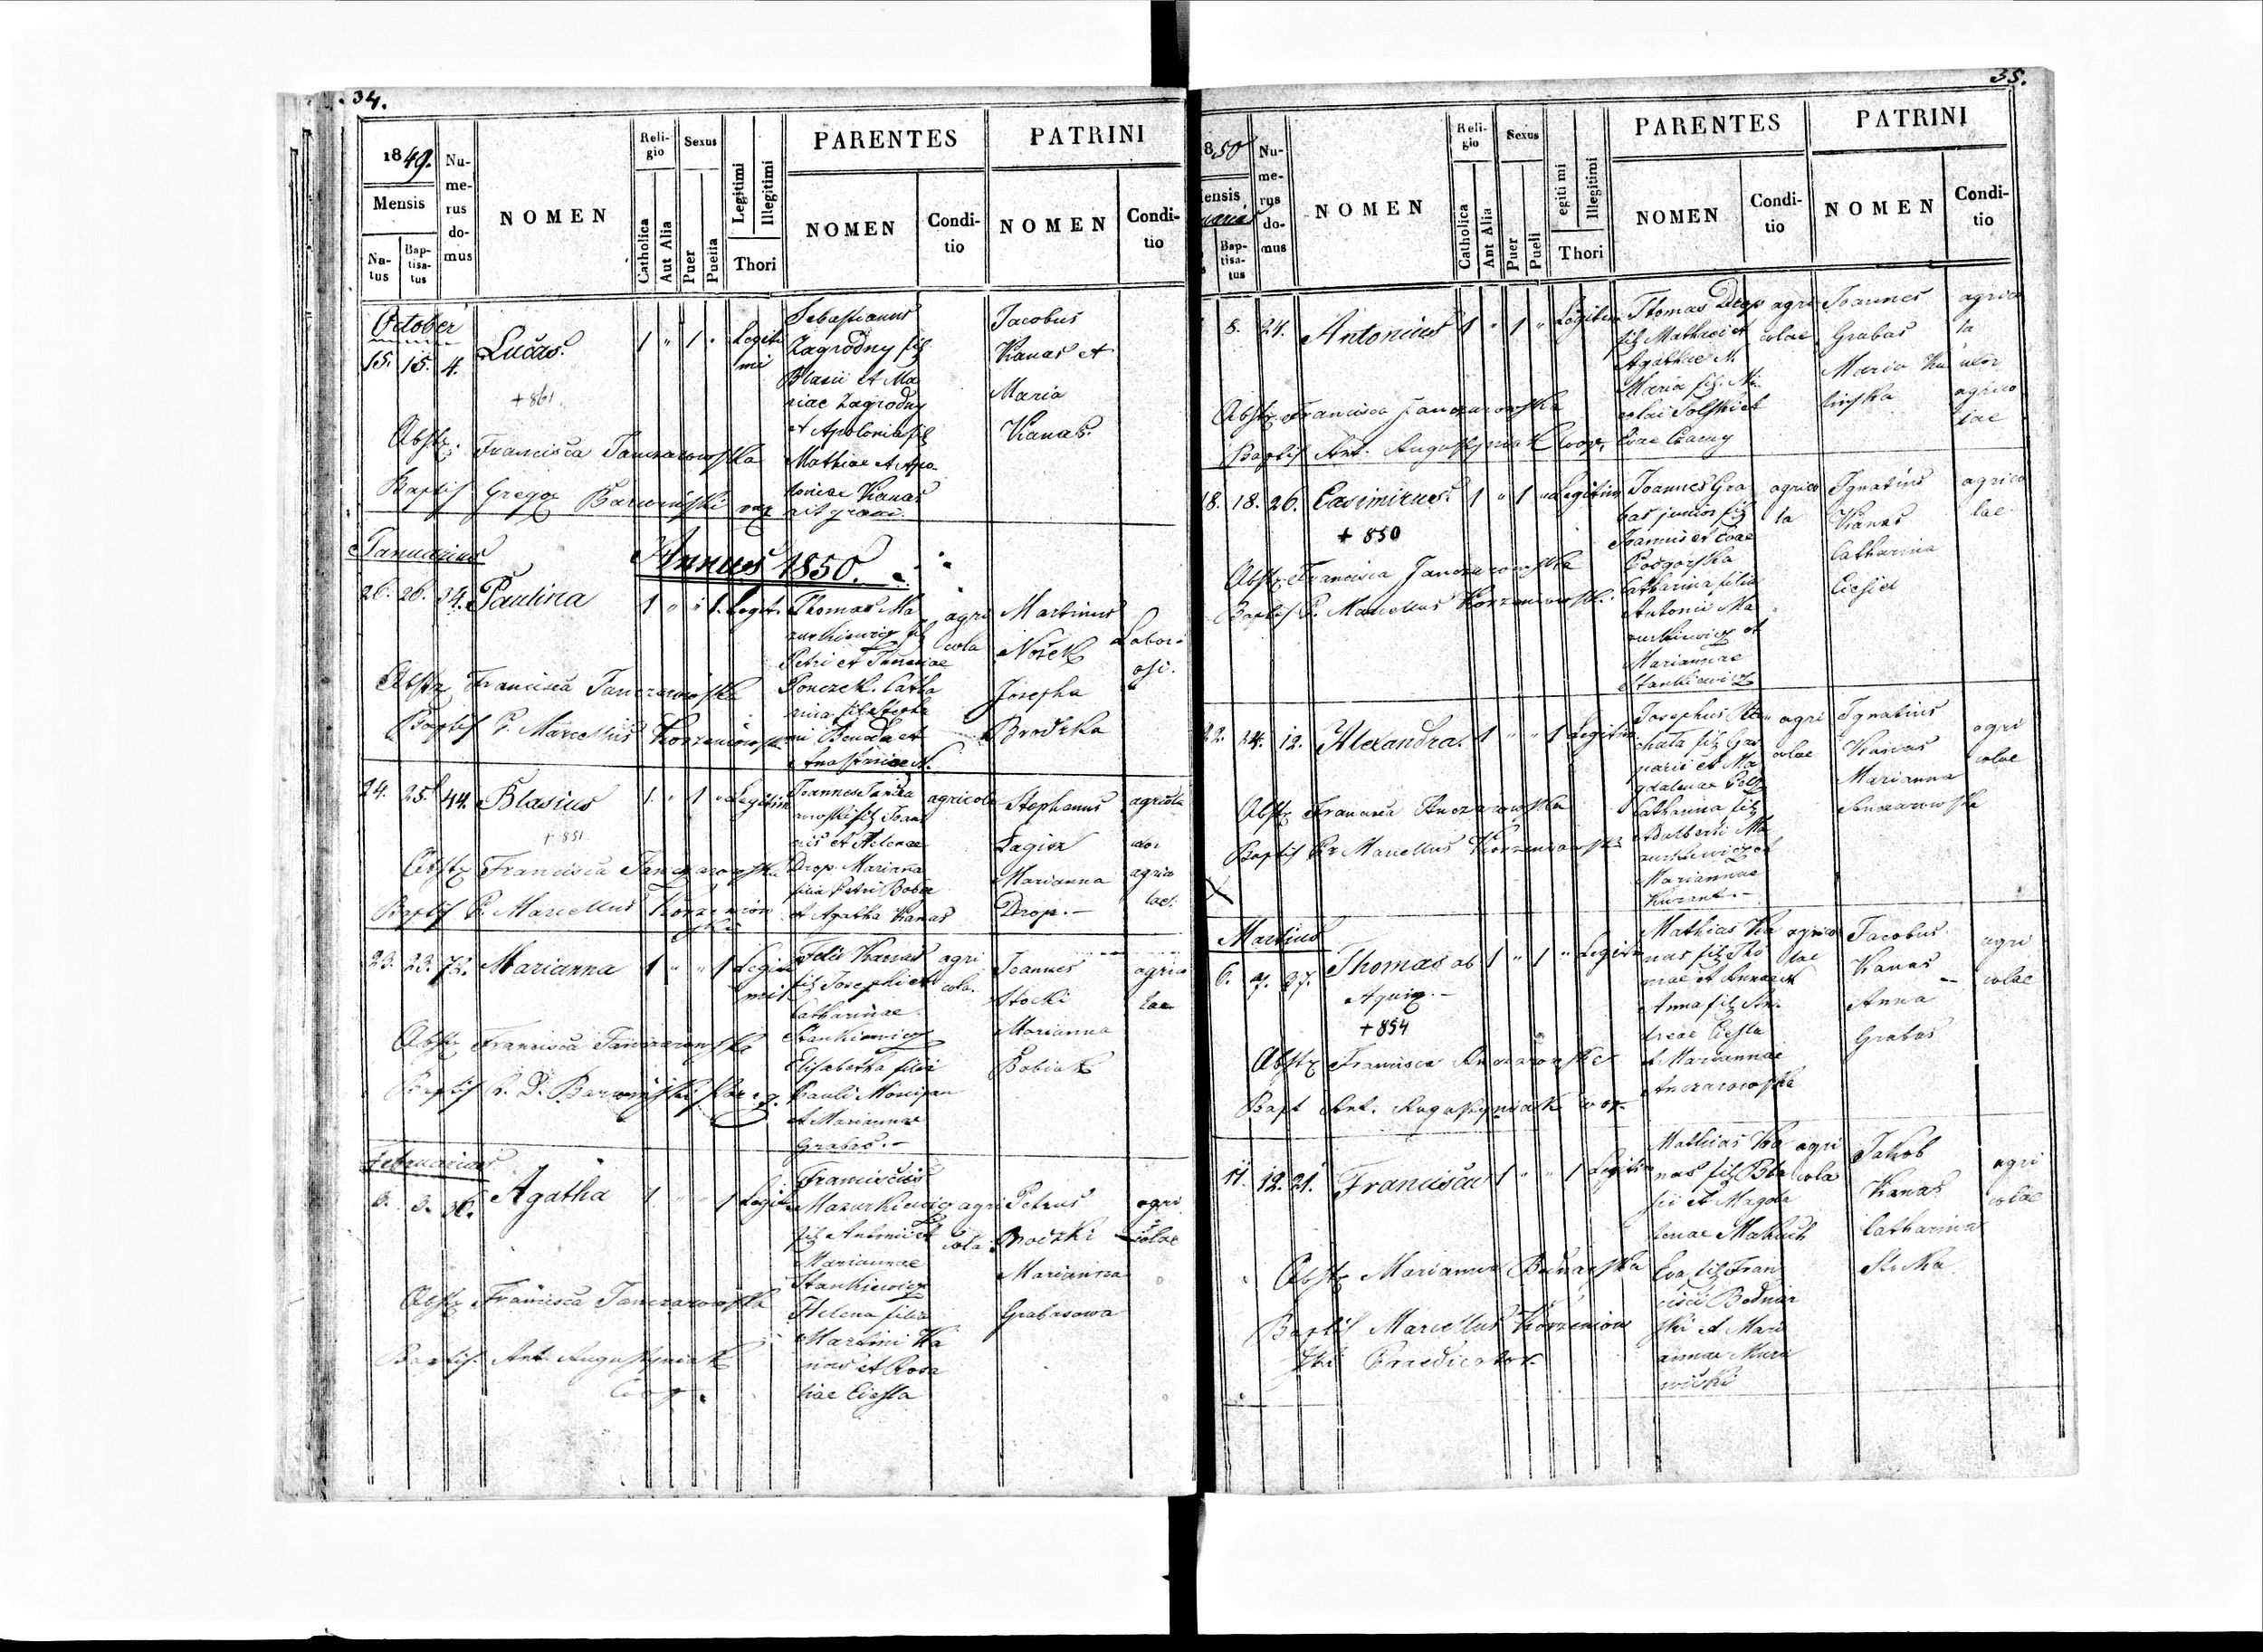 34.
1849.
Mensis
Na-
tus
Bap-
tisa-
tus
Nu-
me-
rus
do-
mus
NOMEN
Reli-
gio
Catholica
Aut Alia
Sexus
Puer
Puella
Legitimi
Illegitimi
Thori
PARENTES
NOMEN
Condi-
tio
PATRINI
NOMEN
Condi-
tio
October
15. 15. 4. Lucas. 1 " 1 " Legiti
mi
+ 861
Obstz. Francisca Janczarowska
Baptis Gregor Barwinski
Sebastianus
Zagrodny filz
Blasii et Ma
riae Zagrodny
et Apolonia filz
Mathiae et Apo
loniae Kanas
Jacobus
Kanas et
Maria
Kanas.
Januarius
Annus 1850.
26. 26. 34. Paulina 1 " " 1. Legit.
Obstz Francisca Janczarowska
Baptis P. Marcellus Korzeniowski
Thomas Ma
zurkiewicz filz
Petri et
Ponczek. Catha
rina
Benda et
agri
cola
Martinus
Nosek
Josepha
Brodzka
Labori
osi.
24. 25. 44. Blasius 1. " 1 " Legitim
+ 851
Obstz Francisca Janczarowska
Baptis P. Marcellus Korzeniow
ski
Joannes Jancza
rowski filz Joan
nis et Helenae
Drop. Marianna
filia Petri Bober
et Agatha Kanas
agricola
Stephanus
Lagisz
Marianna
Drop. —
agricola
agrico
lae.
23. 23. 72. Marianna 1 " " 1 Legiti
mi
Obstz Francisca Janczarowska
Baptis R. D. Barwinski
Felix Kanas
filz Josephi et
Catharinae
Stankiewicz
Elisabetha filia
Pauli
et Mariannae
Grabas. —
agri
cola.
Joannes
Stocki
Marianna
Babiak
agrico
lae
Februarius
3. 3. Agatha 1 " " 1 Legiti
Obstz Francisca Janczarowska
Baptis. Ant. Augustyniak
Coop.
Franciscus
Mazurkiewicz
filz Antonii et
Mariannae
Stankiewicz
Helena filia
Martini Ka
nas et Rosa
liae Ciesla
agri
cola.
Petrus
Brodzki
Marianna
Grabasowa
agri
colae
35.
1850
Mensis
Bap-
tisa-
tus
Nu-
me-
rus
do-
mus
NOMEN
Reli-
gio
Catholica
Ant Alia
Sexus
Puer
Pueli
egiti mi
Illegitimi
Thori
PARENTES
NOMEN
Condi-
tio
PATRINI
NOMEN
Condi-
tio
8. 24. Antonius 1 " 1 " Legitim
Obstz. Francisca Janczarowska
Baptis Ant. Augustyniak Coop.
Thomas Drop
filz Mathaei et
Agathae M.
Maria filz. Ni
colai Solski et
Evae Czarny
agri
colae
Joannes
Grabas
Maria Ku
linska
agrico
la
uxor
agrico
lae
18. 18. 26. Casimirus. 1 " 1 " Legitim
+ 850
Obstz Francisca Janczarowska
Baptis P. Marcellus Korzeniowski.
Joannes Gra
bas junior filz
Joannis et Evae
Podgorska
Catharina filia
Antonii Ma
zurkiewicz et
Mariannae
Stankiewicz
agrico
la
Ignatius
Kanas
Catharina
Ciesiel
agrico
lae
22. 24. 12. Alexandra. 1 " " 1 Legitim
Obstz Francisca Anczarowska
Baptis Pr Marcellus Korzeniowski
Josephus
filz Gas
parii et Ma
gdalenae
Catharina filz
Adalberti Ma
zurkiewicz et
Mariannae
Kurant. —
agri
colae
Ignatius
Kanas
Marianna
Anczarowska
agri
colae
Martius
6. 7. 37. Thomas ab 1 " 1 " Legitim
Aquin. —
+ 854
Obstz Francisca Anczarowska
Bapt Ant. Augustyniak coop.
Mathias Ka
nas filz Tho
mae et Annae et
Anna filz An
dreae Ciesla
et Mariannae
Anczarowska
agrico
lae
Jacobus
Kanas
Anna
Grabas
agri
colae
11. 12. 21. Francisca 1 " " 1 Legitim
Obstz Marianna Bednarska
Baptis Marcellus Korzeniow
ski Praedicator.
Mathias Ka
nas filz Bla
sii et Magda
lenae
Eva filz Fran
cisci Bednar
ski et Mari
annae
agri
cola
Jakob
Kanas
Catharina
Stocka
agri
colae